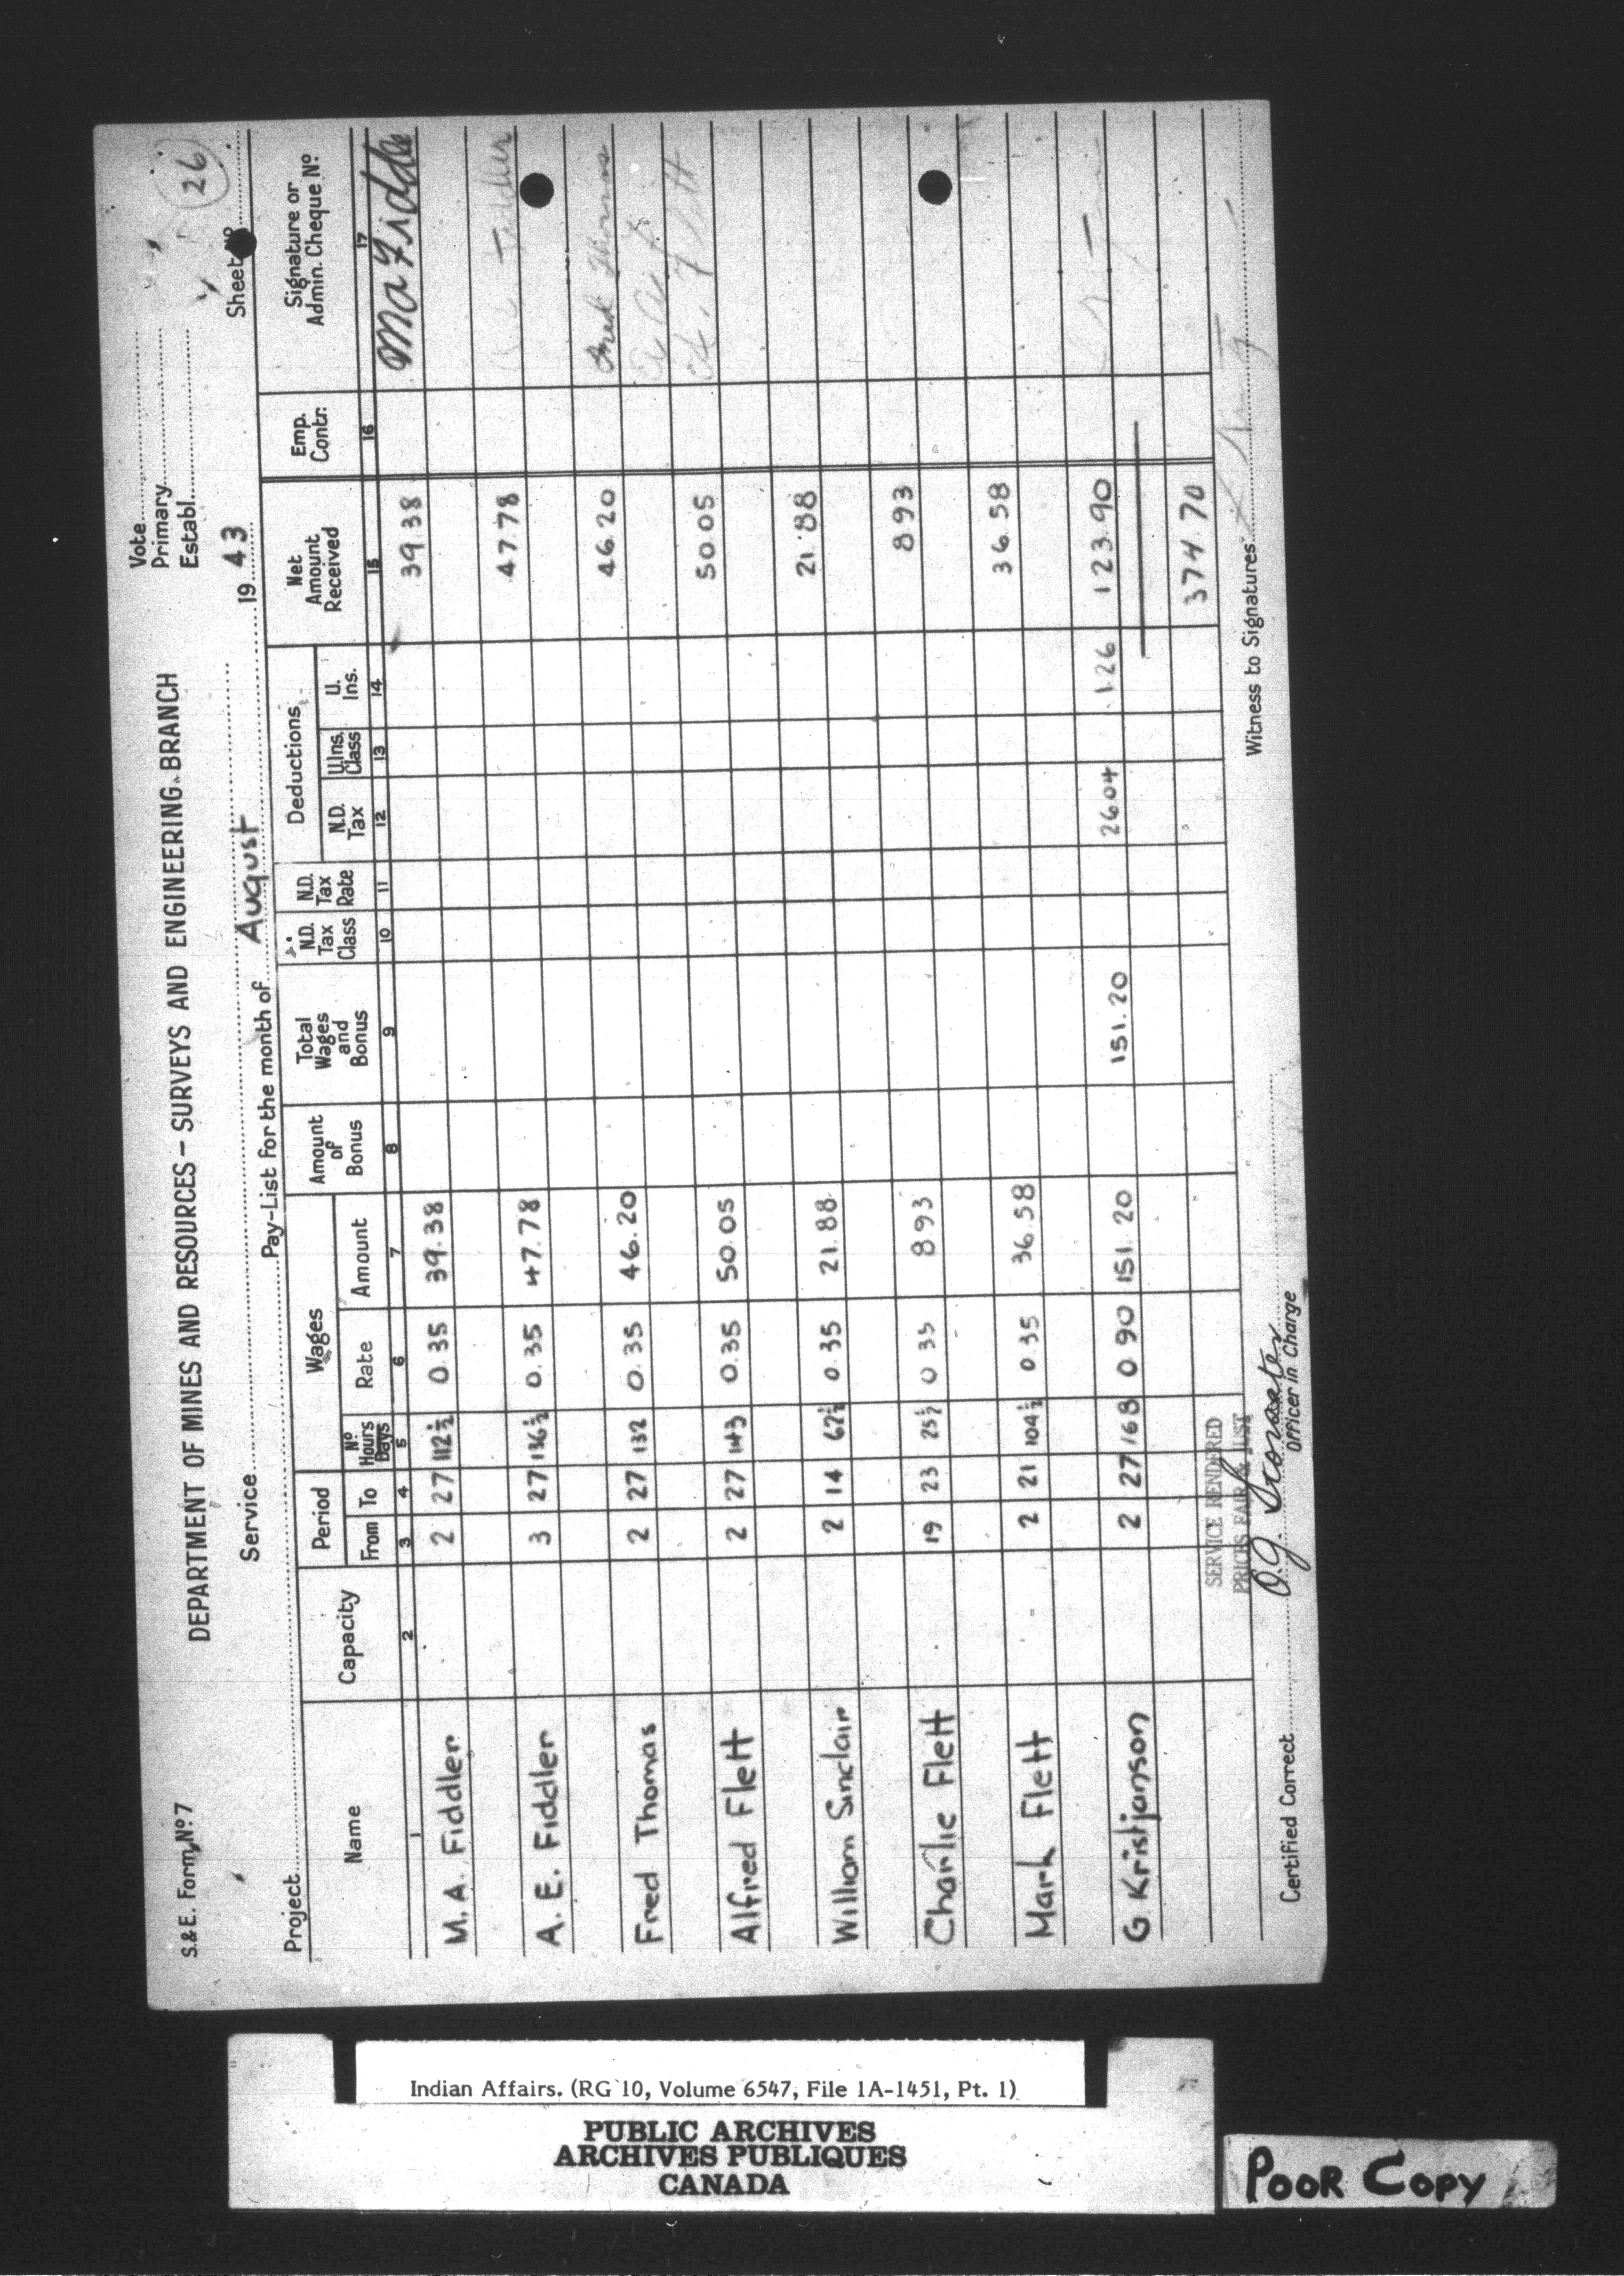 S.& E. Form Nº 7
Vote
Primary
Establ.
26
DEPARTMENT OF MINES AND RESOURCES – SURVEYS AND ENGINEERING BRANCH
Service
Sheet Nº
Project
Pay-List for the month of August 1943
Name Capacity Period Wages Amount of Bonus Total Wages and Bonus N.D. Tax Class N.D. Tax Rate Deductions Net Amount Received Emp. Contr. Signature or Admin. Cheque Nº
From To Nº Hours Days Rate Amount N.D. Tax U.Ins. Class U. Ins.
1 2 3 4 5 6 7 8 9 10 11 12 13 14 15 16 17
M. A. Fiddler 2 27 112½ 0.35 39.38 39.38 M a Fiddle
A. E. Fiddler 3 27 136½ 0.35 47.78 47.78 Fiddler
Fred Thomas 2 27 132 0.35 46.20 46.20 Fred Thomas
Alfred Flett 2 27 143 0.35 50.05 50.05 Flett
William Sinclair 2 14 62½ 0.35 21.88 21.88
Charlie Flett 19 23 25½ 0 35 8 93 8 93
Mark Flett 2 21 104½ 0 35 36.58 36.58
G Kristjanson 2 27 168 0 90 151.20 151.20 26.04 1.26 123.90
374.70
SERVICE RENDERED
PRICES FAIR & JUST
Certified Correct
Officer in Charge
Witness to Signatures
Indian Affairs. (RG 10, Volume 6547, File 1A-1451, Pt. 1)
PUBLIC ARCHIVES
ARCHIVES PUBLIQUES
CANADA
POOR COPY